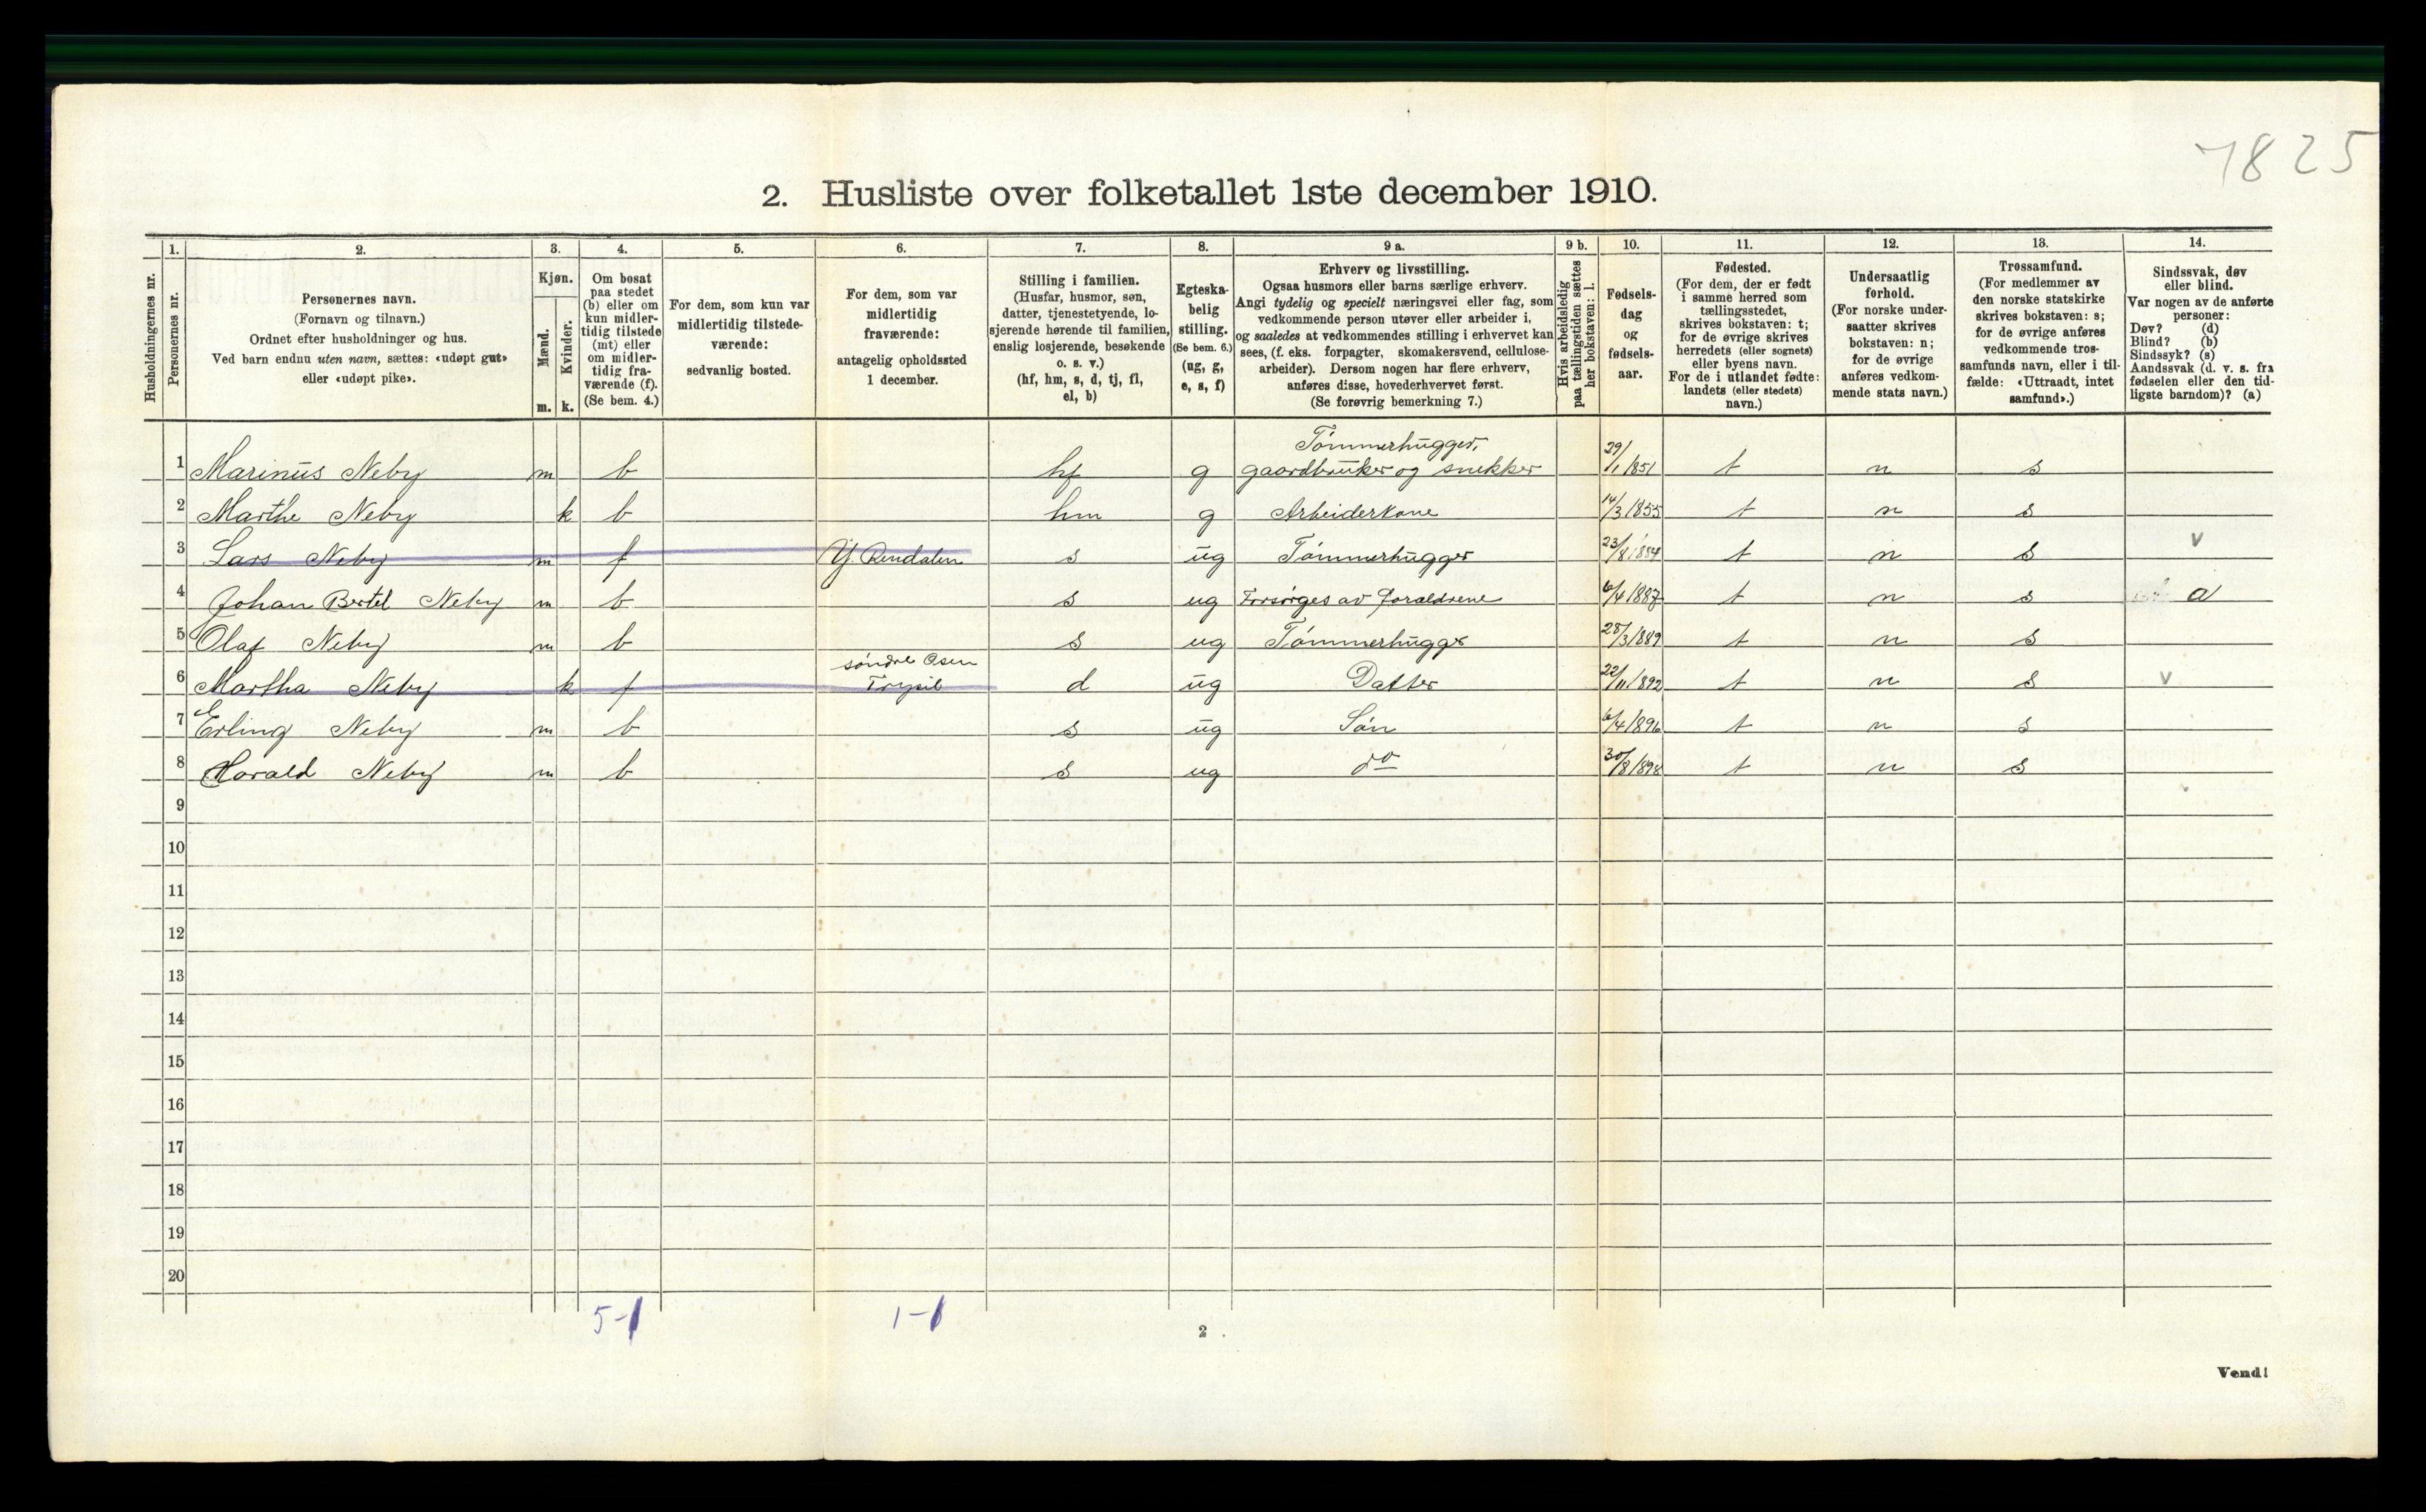 7825
2. Husliste over folketallet 1ste december 1910.
Husholdningernes nr.
1.
Personernes nr.
2.
Personernes navn.
(Fornavn og tilnavn.)
Ordnet efter husholdninger og hus.
Ved barn endnu uten navn, sættes: «udøpt gut»
eller «udøpt pike».
3.
Kjøn.
Mænd.
Kvinder.
m. k.
4.
Om bosat
paa stedet
(b) eller om
kun midler-
tidig tilstede
(mt) eller
om midler-
tidig fra-
værende (f).
(Se bem. 4.)
5.
For dem, som kun var
midlertidig tilstede-
værende:
sedvanlig bosted.
6.
For dem, som var
midlertidig
fraværende:
antagelig opholdssted
1 december.
7.
Stilling i familien.
(Husfar, husmor, søn,
datter, tjenestetyende, lo-
sjerende hørende til familien,
enslig losjerende, besøkende
o. s. v.)
(hf, hm, s, d, tj, fl,
el, b)
8.
Egteska-
belig
stilling.
(Se bem. 6.)
(ug, g,
e, s, f)
9 a.
Erhverv og livsstilling.
Ogsaa husmors eller barns særlige erhverv.
Angi tydelig og specielt næringsvei eller fag, som
vedkommende person utøver eller arbeider i,
og saaledes at vedkommendes stilling i erhvervet kan
sees, (f. eks. forpagter, skomakersvend, cellulose-
arbeider). Dersom nogen har flere erhverv,
anføres disse, hovederhvervet først.
(Se forøvrig bemerkning 7.)
9 b.
Hvis arbeidsledig
paa tællingstiden sættes
her bokstaven: l.
10.
Fødsels-
dag
og
fødsels-
aar.
11.
Fødested.
(For dem, der er født
i samme herred som
tællingsstedet,
skrives bokstaven: t;
for de øvrige skrives
herredets (eller sognets)
eller byens navn.
For de i utlandet fødte:
landets (eller stedets)
navn.)
12.
Undersaatlig
forhold.
(For norske under-
saatter skrives
bokstaven: n;
for de øvrige
anføres vedkom-
mende stats navn.)
13.
Trossamfund.
(For medlemmer av
den norske statskirke
skrives bokstaven: s;
for de øvrige anføres
vedkommende tros-
samfunds navn, eller i til-
fælde: «Uttraadt, intet
samfund».)
14.
Sindssvak, døv
eller blind.
Var nogen av de anførte
personer:
Døv? (d)
Blind? (b)
Sindssyk? (s)
Aandssvak (d. v. s. fra
fødselen eller den tid-
ligste barndom)? (a)
Tømmerhugger,
1 Marinus Neby m b hf g gaardbruker og snekker 29/1 1851 t n s
2 Marthe Neby k b hm g Arbeiderkone 14/3 1855 t n s
3 Lars Neby m f Y. Rendalen s ug Tømmerhugger 23/8 1884 t n s v
4 Johan Bertel Neby m b s ug Forsørges av foraldrene 6/4 1887 t n s a
5 Olaf Neby m b s ug Tømmerhugger 28/3 1889 t n s
søndre Osen
6 Martha Neby k f Trysil d ug Datter 22/11 1892 t n s v
7 Erling Neby m b s ug Søn 6/4 1896 t n s
8 Harald Neby m b s ug do 30/8 1898 t n s
9
10
11
12
13
14
15
16
17
18
19
20
5-1 1-1
2
Vend!